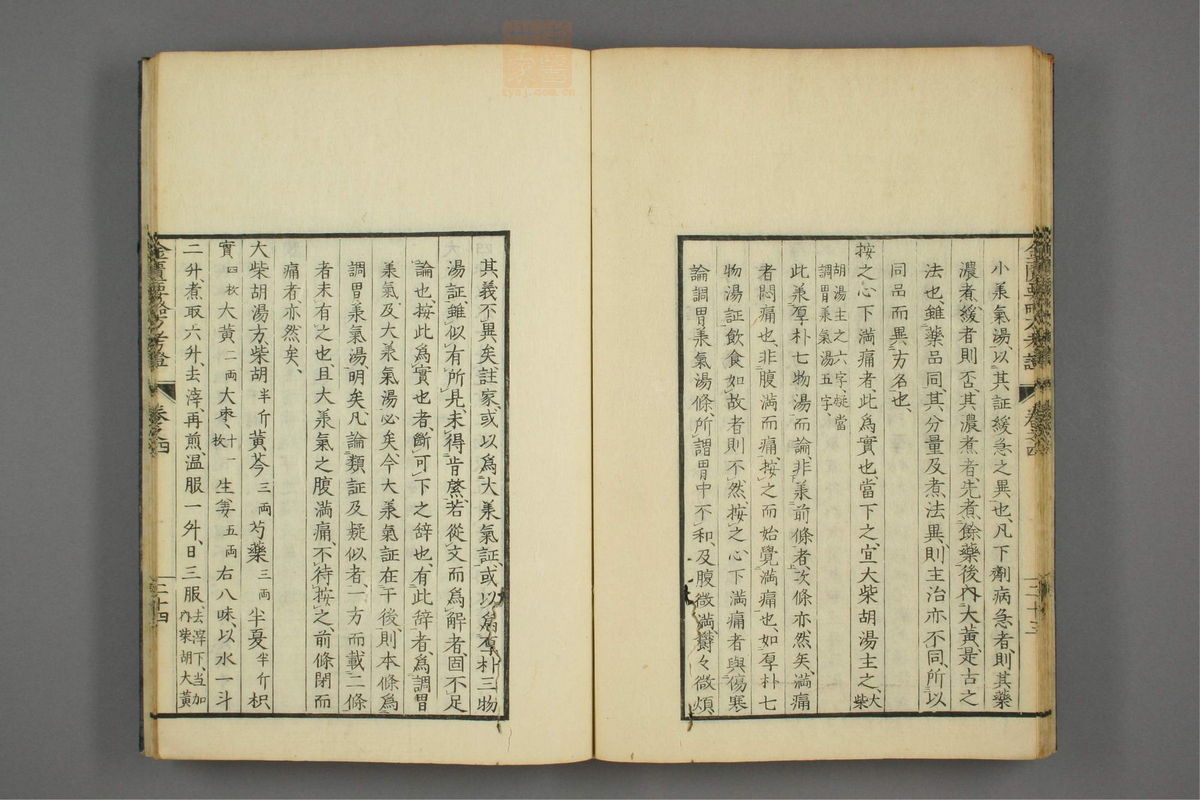 小承氣湯、以其証緩急之異也、凡下劑病急者、則其藥
濃煮、緩者則否、其濃煮者、先煮餘藥後內大黃、是古之
法也、雖藥品同、其分量及煮法異、則主治亦不同、所以
同品而異方名也、
按之心下滿痛者、此為實也、當下之、宜大柴胡湯主之、大柴
胡湯主之六字疑當
調胃承氣湯五字、
此承厚朴七物湯而論、非承前條者、次條亦然矣、滿痛
者悶痛也、非腹滿而痛、按之而始覺滿痛也、如厚朴七
物湯証飲食如故者則不然、按之心下滿痛者與傷寒
論調胃承氣湯條、所謂胃中不和、及腹微滿、欝々微煩
卷之四
三十三
其義不異矣註家或以為大承氣証、或以為厚朴三物
湯証、雖似有所見、未得肯綮、若從文而為解者、固不足
論也、按此為實也者、斷可下之辞也、有此辞者、為調胃
承氣及大承氣湯必矣、今大承氣証在于後、則本條為
調胃承氣湯、明矣、凡論類証及疑似者、一方而載二條
者未有之也、且大承氣之腹滿痛、不待按之、前條閉而
痛者亦然矣、
大柴胡湯方、柴胡半斤黃芩三兩芍藥三兩半夏半斤枳
實四枚大黃二兩大棗、十一枚生薑五兩右八味、以水一斗
二升、煮取六升、去滓、再煎、温服一升、日三服、去滓下、当加內柴胡大黃
金匱要略方考證
卷之四
三十四